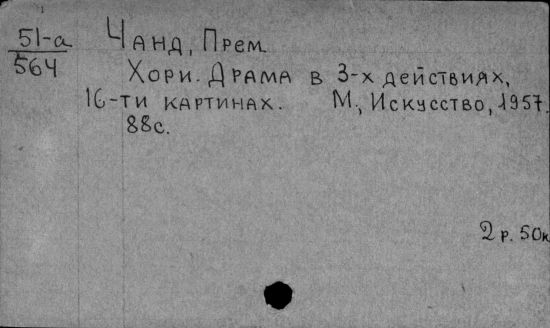 51-а
564
Чанд, Прем.
Хори. Драма в 3-х действиях,
16-ти картинах. М., Искусство, 1957.
88с.
2 р. 50к